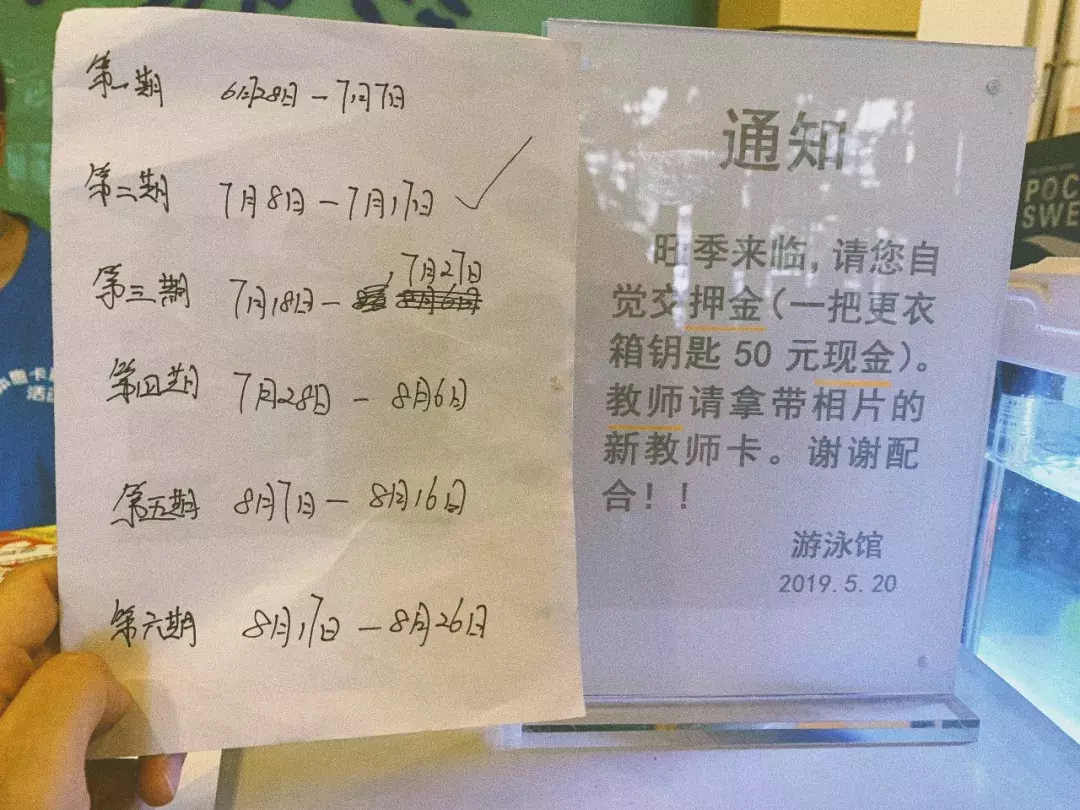 第一期 6月28日－7月7日
第二期 7月8日－7月17日 ✓
第三期 7月18日－7月27日
第四期 7月28日－8月6日
第五期 8月7日－8月16日
第六期 8月17日－8月26日
通知
旺季来临,请您自
觉交押金(一把更衣
箱钥匙50元现金)。
教师请拿带相片的
新教师卡。谢谢配
合!!
游泳馆
2019.5.20
POC
SWE